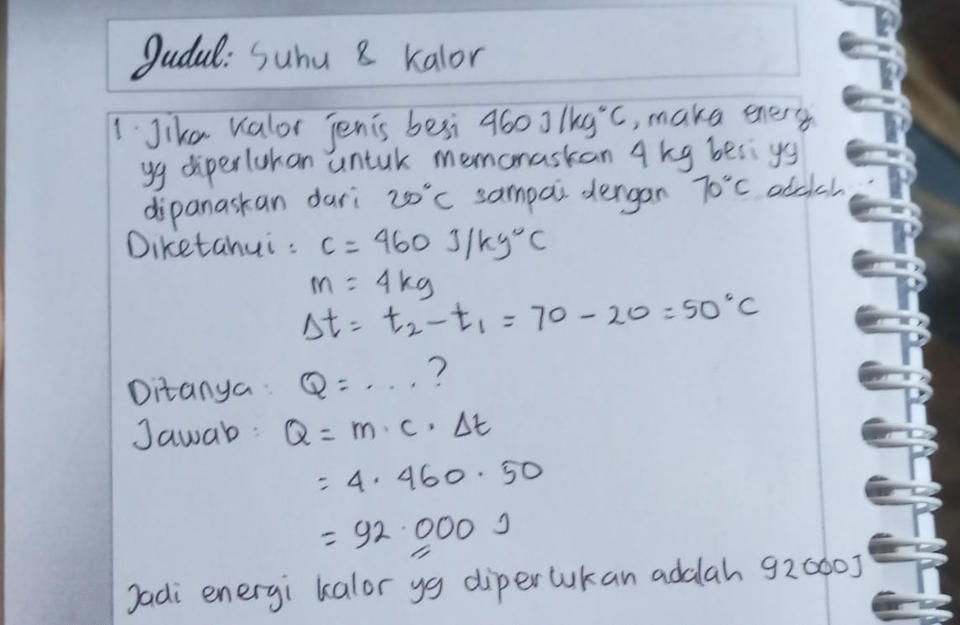 Judul: Suhu & Kalor
1. Jika kalor jenis besi 460 J/kg°C, maka energi
yg diperlukan untuk memanaskan 4 kg besi yg
dipanaskan dari 20°C sampai dengan 70°C adalah...
Diketahui : c = 460 J/kg°C
m = 4 kg
Δt = t₂ - t₁ = 70 - 20 = 50°C
Ditanya : Q = . . . ?
Jawab : Q = m . c . Δt
= 4 . 460 . 50
= 92.000 J
Jadi energi kalor yg diperlukan adalah 92000 J